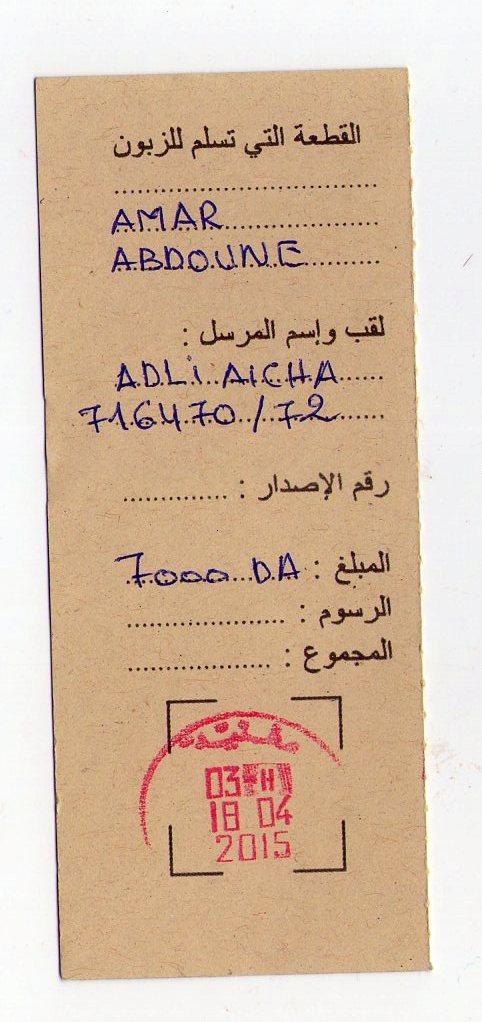 القطعة التي تسلم للزبون
AMAR
ABDOUNE
لقب وإسم المرسل :
ADLi AICHA
716470 / 72
رقم الإصدار :
المبلغ : 7000 DA
الرسوم :
المجموع :
03 H
18 04
2015